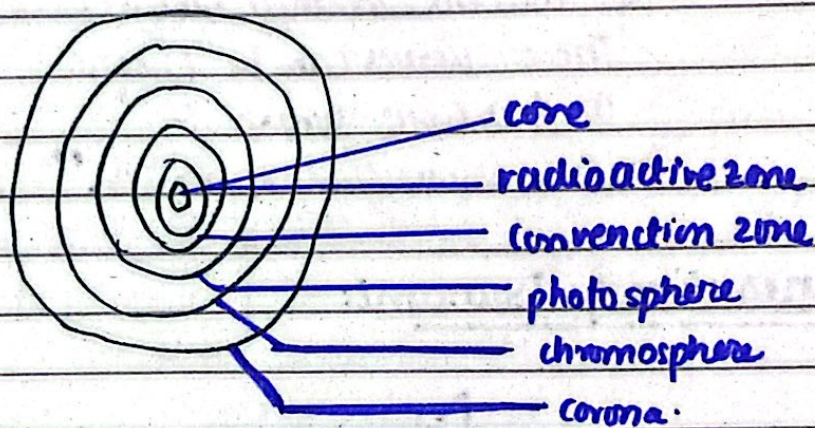 core
radioactive zone
convenction zone
photosphere
chromosphere
corona.